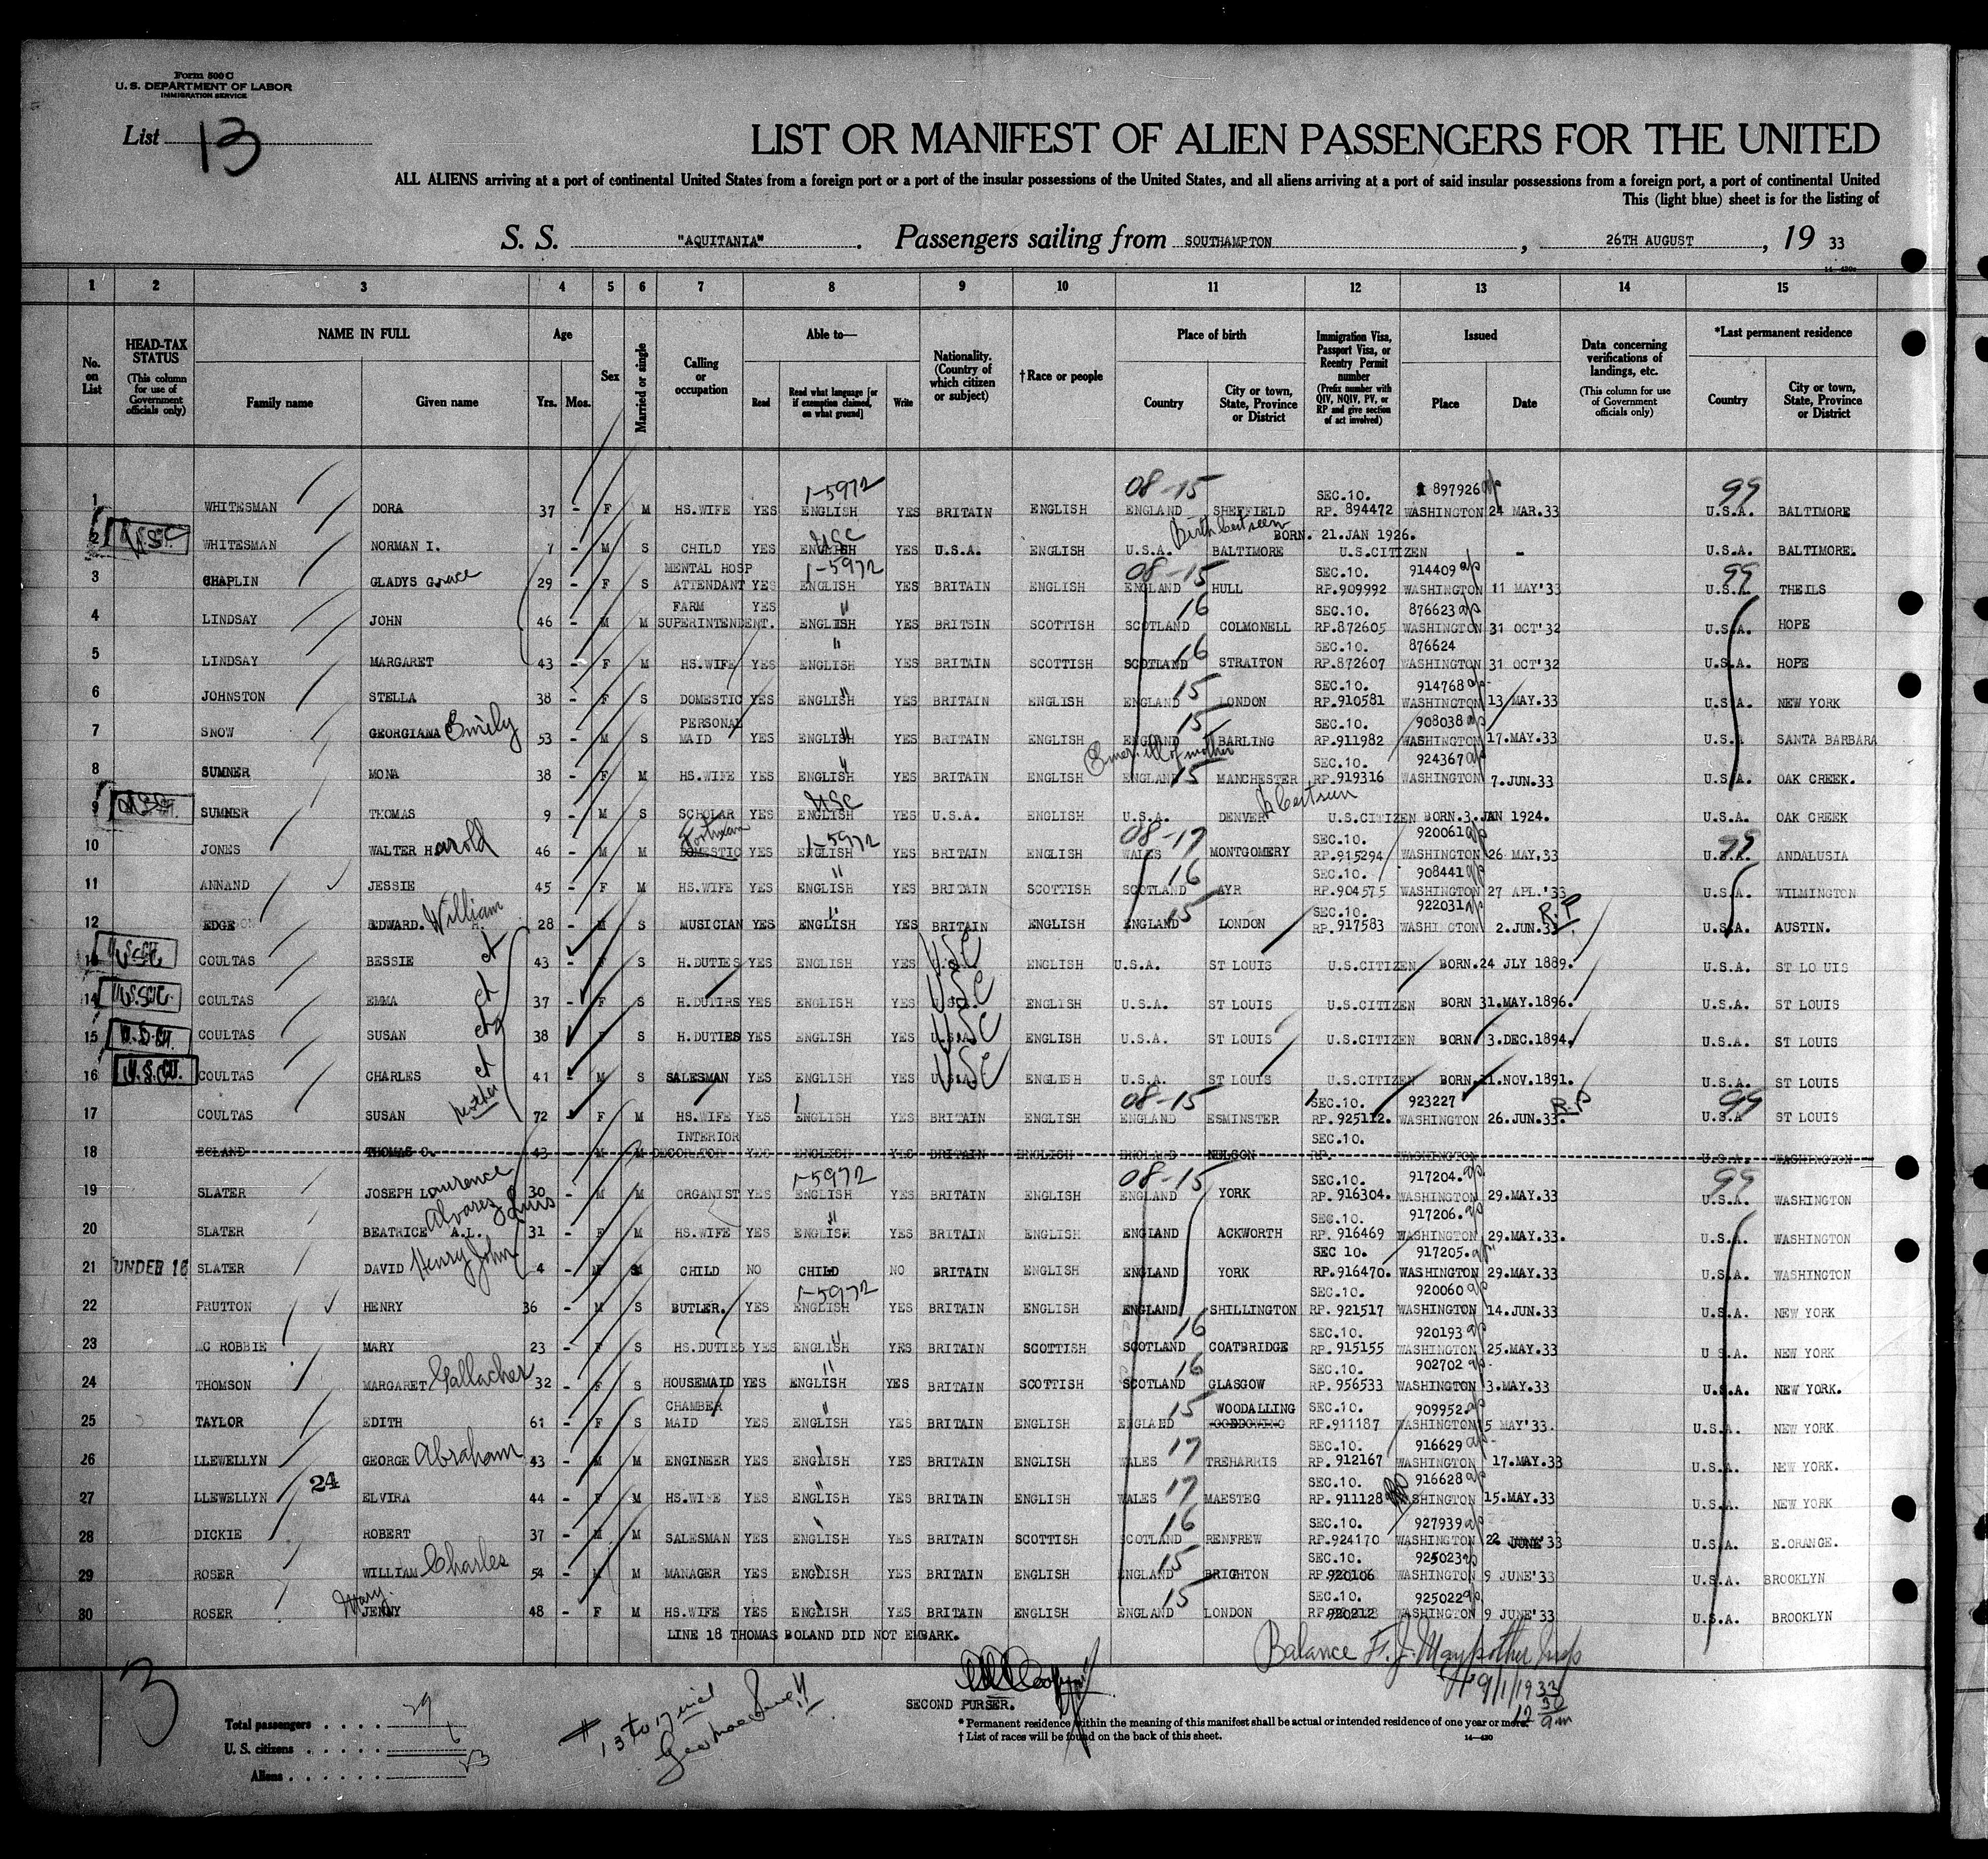 Form 500 C
U. S. DEPARTMENT OF LABOR
IMMIGRATION SERVICE
List 13
LIST OR MANIFEST OF ALIEN PASSENGERS FOR THE UNITED
ALL ALIENS arriving at a port of continental United States from a foreign port or a port of the insular possessions of the United States, and all aliens arriving at a port of said insular possessions from a foreign port, a port of continental United
This (light blue) sheet is for the listing of
S. S. "AQUITANIA" . Passengers sailing from SOUTHAMPTON , 26TH AUGUST , 19 33
1 2 3 4 5 6 7 8 9 10 11 12 13 14 15
No. on List
HEAD-TAX STATUS (This column for use of Government officials only)
NAME IN FULL Family name Given name
Age Yrs. Mos.
Sex
Married or single
Calling or occupation
Able to— Read Read what language [or if exemption claimed, on what ground] Write
Nationality. (Country of which citizen or subject)
†Race or people
Place of birth Country City or town, State, Province or District
Immigration Visa, Passport Visa, or Reentry Permit number (Prefix number with QIV, NQIV, PV, or RP and give section of act involved)
Issued Place Date
Data concerning verifications of landings, etc. (This column for use of Government officials only)
*Last permanent residence Country City or town, State, Province or District
1-5972 08-15 SEC.10. 897926 99
1 WHITESMAN DORA 37 - F M HS.WIFE YES ENGLISH YES BRITAIN ENGLISH ENGLAND SHEFFIELD RP. 894472 WASHINGTON 24 MAR.33 U.S.A. BALTIMORE
USC Birth cert seen BORN. 21.JAN 1926.
2 WHITESMAN NORMAN I. 7 - M S CHILD YES ENGLISH YES U.S.A. ENGLISH U.S.A. BALTIMORE U.S.CITIZEN - U.S.A. BALTIMORE.
MENTAL HOSP 1-5972 08-15 SEC.10. 914409 99
3 CHAPLIN GLADYS Grace 29 - F S ATTENDANT YES ENGLISH YES BRITAIN ENGLISH ENGLAND HULL RP.909992 WASHINGTON 11 MAY'33 U.S.A. THEILS
FARM YES " 16 SEC.10. 876623
4 LINDSAY JOHN 46 - M M SUPERINTENDENT. ENGLISH YES BRITSIN SCOTTISH SCOTLAND COLMONELL RP.872605 WASHINGTON 31 OCT'32 U.S.A. HOPE
" 16 SEC.10. 876624
5 LINDSAY MARGARET 43 - F M HS.WIFE YES ENGLISH YES BRITAIN SCOTTISH SCOTLAND STRAITON RP.872607 WASHINGTON 31 OCT'32 U.S.A. HOPE
15 SEC.10. 914768
6 JOHNSTON STELLA 38 - F S DOMESTIC YES ENGLISH YES BRITAIN ENGLISH ENGLAND LONDON RP.910581 WASHINGTON 13 MAY.33 U.S.A. NEW YORK
PERSONAL 15 SEC.10. 908038
7 SNOW GEORGIANA Emily 53 - M S MAID YES ENGLISH YES BRITAIN ENGLISH ENGLAND BARLING RP.911982 WASHINGTON 17.MAY.33 U.S.A. SANTA BARBARA
" ill of mother SEC.10. 924367
8 SUMNER MONA 38 - F M HS.WIFE YES ENGLISH YES BRITAIN ENGLISH ENGLAND 15 MANCHESTER RP.919316 WASHINGTON 7.JUN.33 U.S.A. OAK CREEK.
USC
9 SUMNER THOMAS 9 - M S SCHOLAR YES ENGLISH YES U.S.A. ENGLISH U.S.A. DENVER U.S.CITIZEN BORN.3.JAN 1924. U.S.A. OAK CREEK
1-5972 08-17 SEC.10. 920061 99
10 JONES WALTER Harold 46 - M M DOMESTIC YES ENGLISH YES BRITAIN ENGLISH WALES MONTGOMERY RP.915294 WASHINGTON 26 MAY.33 U.S.A. ANDALUSIA
" 16 SEC.10. 908441
11 ANNAND JESSIE 45 - F M HS.WIFE YES ENGLISH YES BRITAIN SCOTTISH SCOTLAND AYR RP.904575 WASHINGTON 27 APL.'33 U.S.A. WILMINGTON
" 15 SEC.10. 922031 R.P
12 EDGE EDWARD. William H. 28 - M S MUSICIAN YES ENGLISH YES BRITAIN ENGLISH ENGLAND LONDON RP.917583 WASHINGTON 2.JUN.33 U.S.A. AUSTIN.
COULTAS BESSIE 43 - F S H.DUTIES YES ENGLISH YES USC ENGLISH U.S.A. ST LOUIS U.S.CITIZEN BORN.24 JLY 1889. U.S.A. ST LOUIS
14 COULTAS EMMA 37 - F S H.DUTIRS YES ENGLISH YES U.S.A. USC ENGLISH U.S.A. ST LOUIS U.S.CITIZEN BORN 31.MAY.1896. U.S.A. ST LOUIS
15 U.S.CIT. COULTAS SUSAN 38 F S H.DUTIES YES ENGLISH YES U.S.A. USC ENGLISH U.S.A. ST LOUIS U.S.CITIZEN BORN 3.DEC.1894. U.S.A. ST LOUIS
16 U.S.CIT. COULTAS CHARLES 41 - M S SALESMAN YES ENGLISH YES U.S.A. USC ENGLISH U.S.A. ST LOUIS U.S.CITIZEN BORN.11.NOV.1891. U.S.A. ST LOUIS
mother 08-15 SEC.10. 923227 R.P 99
17 COULTAS SUSAN 72 F M HS.WIFE YES ENGLISH YES BRITAIN ENGLISH ENGLAND ESMINSTER RP. 925112. WASHINGTON 26.JUN.33. U.S.A ST LOUIS
INTERIOR SEC.10.
18 BOLAND THOMAS O. 43 - M M DECORATOR YES ENGLISH YES BRITAIN ENGLISH ENGLAND NELSON RP. WASHINGTON U.S.A. WASHINGTON
1-5972 08-15 SEC.10. 917204. 99
19 SLATER JOSEPH Laurence 30 - M M ORGANIST YES ENGLISH YES BRITAIN ENGLISH ENGLAND YORK RP. 916304. WASHINGTON 29.MAY.33 U.S.A. WASHINGTON
Alvarez Luis " SEC.10. 917206.
20 SLATER BEATRICE A.L. 31 - F M HS.WIFE YES ENGLISH YES BRITAIN ENGLISH ENGLAND ACKWORTH RP. 916469 WASHINGTON 29.MAY.33. U.S.A. WASHINGTON
SEC 10. 917205.
21 UNDER 16 SLATER DAVID Henry John 4 - M CHILD NO CHILD NO BRITAIN ENGLISH ENGLAND YORK RP. 916470. WASHINGTON 29.MAY.33 U.S.A. WASHINGTON
1-5972 SEC.10. 920060
22 PRUTTON HENRY 36 - M S BUTLER. YES ENGLISH YES BRITAIN ENGLISH ENGLAND SHILLINGTON RP. 921517 WASHINGTON 14.JUN.33 U.S.A. NEW YORK
" 16 SEC.10. 920193
23 MC ROBBIE MARY 23 - F S HS.DUTIES YES ENGLISH YES BRITAIN SCOTTISH SCOTLAND COATBRIDGE RP.915155 WASHINGTON 25.MAY.33 U.S.A. NEW YORK
" 16 SEC.10. 902702
24 THOMSON MARGARET Gallacher 32 - F S HOUSEMAID YES ENGLISH YES BRITAIN SCOTTISH SCOTLAND GLASGOW RP. 956533 WASHINGTON 3.MAY.33 U.S.A. NEW YORK.
CHAMBER " 15 WOODALLING SEC.10. 909952.
25 TAYLOR EDITH 61 - F S MAID YES ENGLISH YES BRITAIN ENGLISH ENGLAND RP.911187 WASHINGTON 5 MAY'33. U.S.A. NEW YORK
" 17 SEC.10. 916629
26 LLEWELLYN GEORGE Abraham 43 - M M ENGINEER YES ENGLISH YES BRITAIN ENGLISH WALES TREHARRIS RP. 912167 WASHINGTON 17.MAY.33 U.S.A. NEW YORK.
24 " 17 SEC.10. 916628
27 LLEWELLYN ELVIRA 44 - F M HS.WIFE YES ENGLISH YES BRITAIN ENGLISH WALES MAESTEG RP. 911128 WASHINGTON 15.MAY.33 U.S.A. NEW YORK
16 SEC.10. 927939
28 DICKIE ROBERT 37 - M M SALESMAN YES ENGLISH YES BRITAIN SCOTTISH SCOTLAND RENFREW RP.924170 WASHINGTON 22 JUNE'33 U.S.A. E.ORANGE.
15 SEC.10. 925023
29 ROSER WILLIAM Charles 54 - M M MANAGER YES ENGLISH YES BRITAIN ENGLISH ENGLAND BRIGHTON RP.920106 WASHINGTON 9 JUNE'33 U.S.A. BROOKLYN
Mary. 15 SEC.10. 925022
30 ROSER JENNY 48 - F M HS.WIFE YES ENGLISH YES BRITAIN ENGLISH ENGLAND LONDON RP. WASHINGTON 9 JUNE'33 U.S.A. BROOKLYN
LINE 18 THOMAS BOLAND DID NOT EMBARK.
Balance F. J. Maypother Insp
9/1/1933
13
SECOND PURSER.
* Permanent residence within the meaning of this manifest shall be actual or intended residence of one year or more.
† List of races will be found on the back of this sheet.
Total passengers . . . . 29
U. S. citizens . . . . . 6
Aliens . . . . . . 23
# 13 to 17 incl